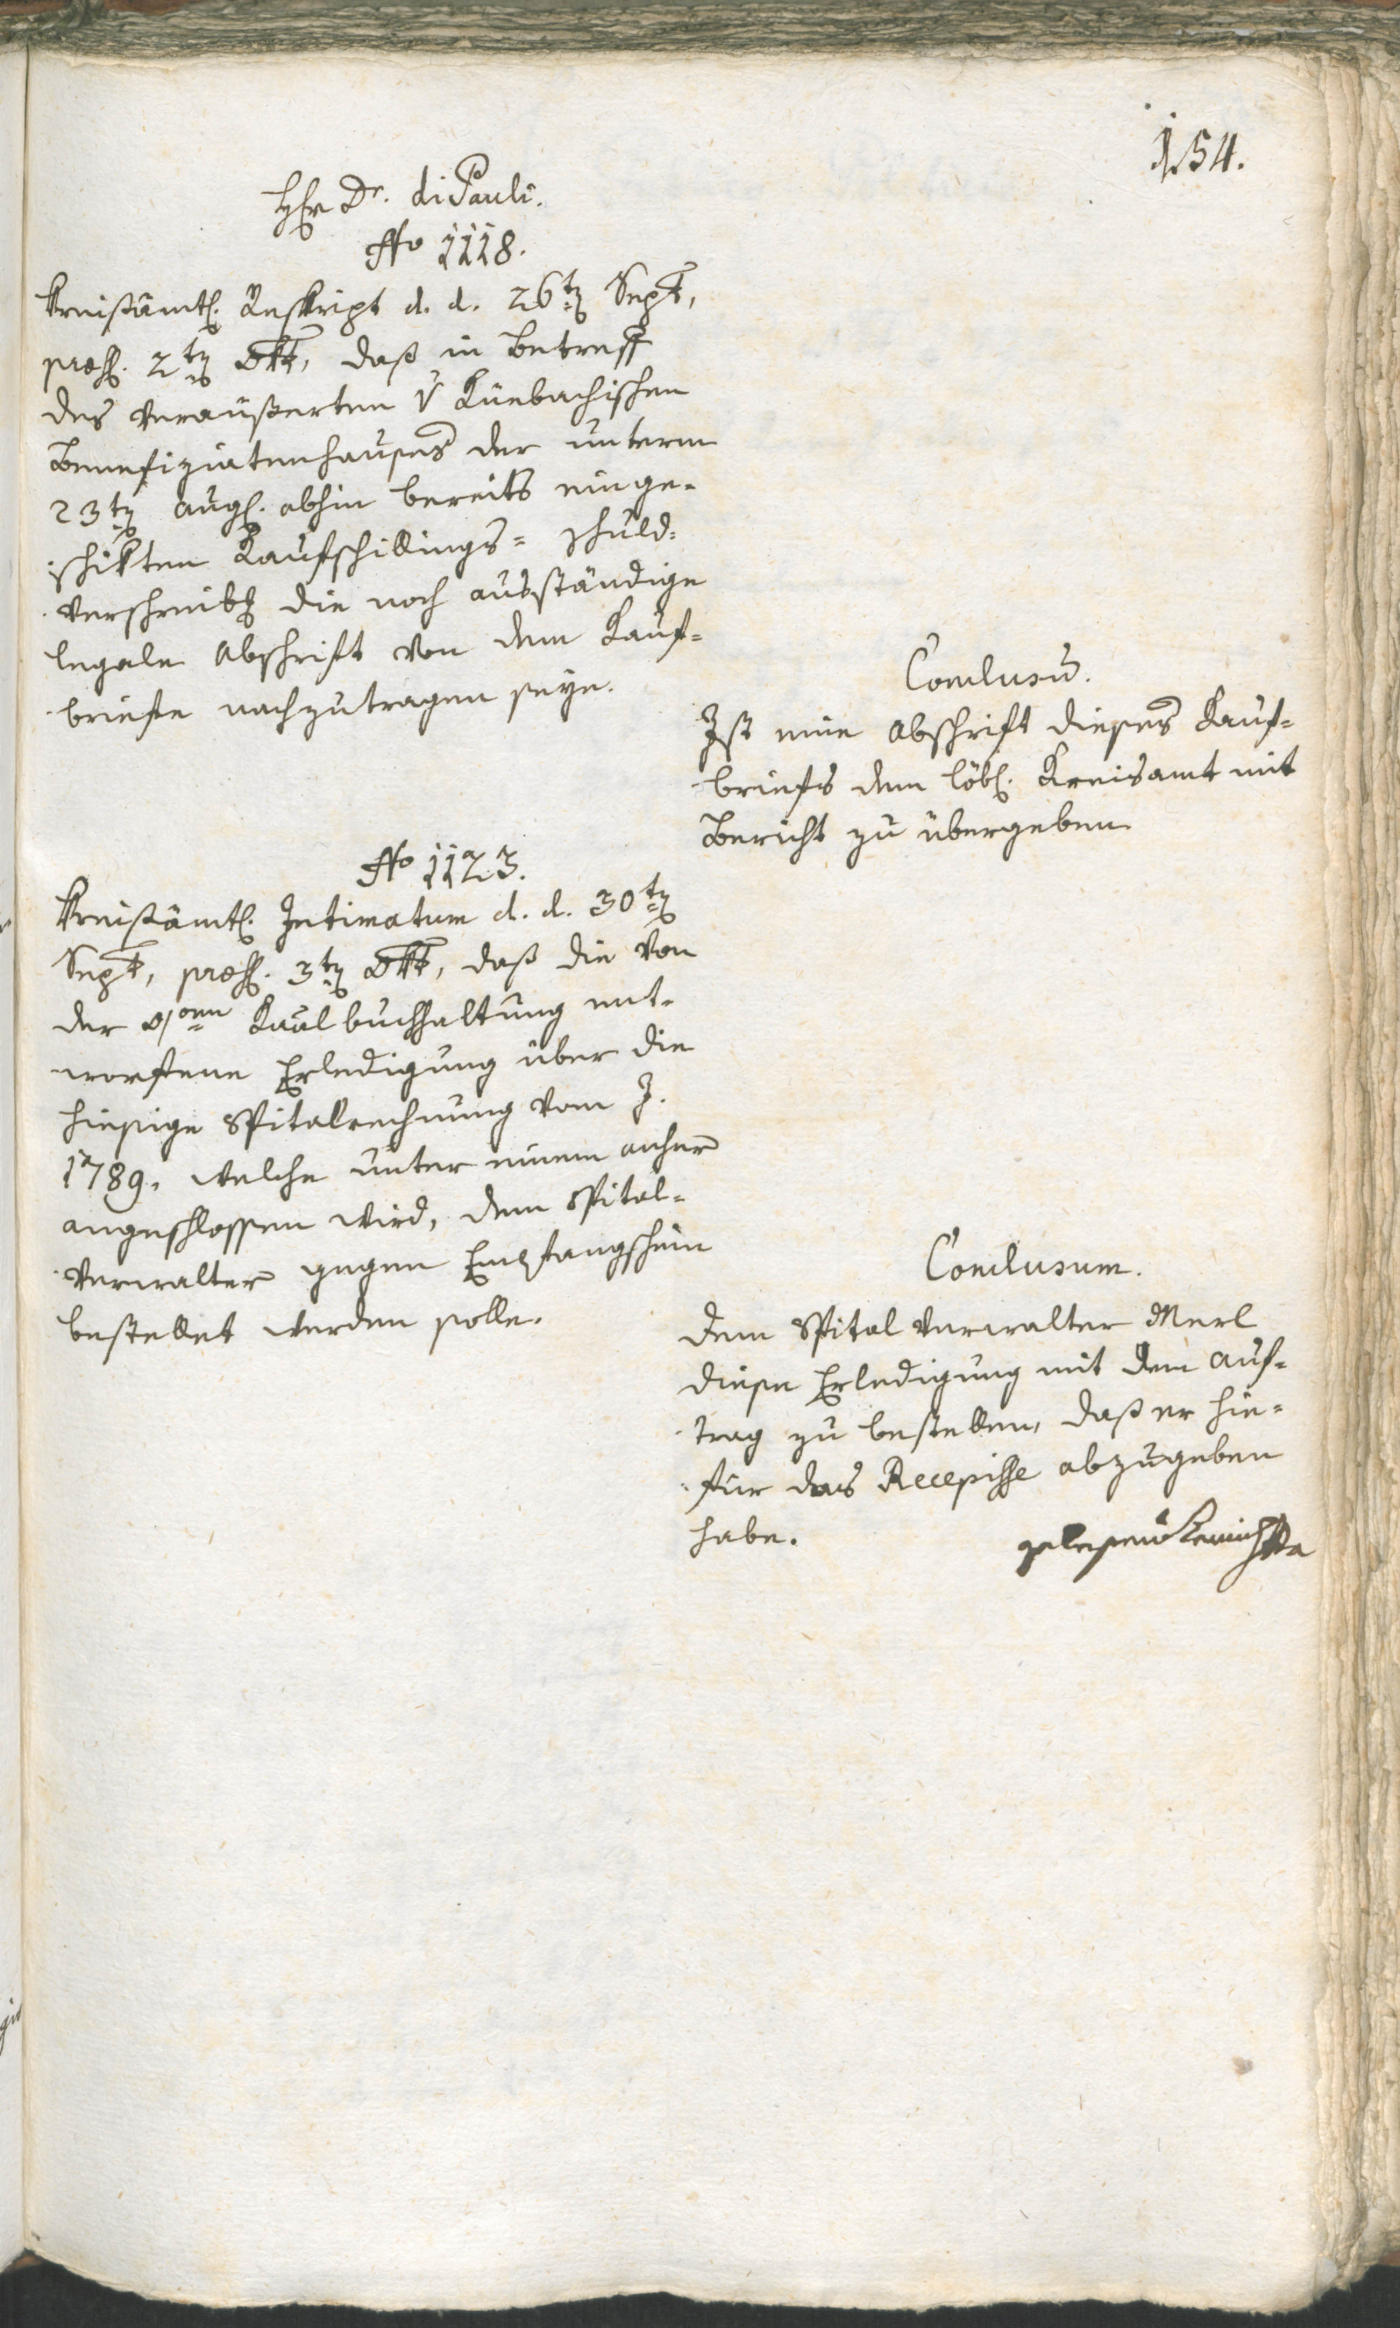 154.
Hr Dr. di Pauli.
No 1118.
Kreisämtl. Reskript d. d. 26ten Sept,
præs. 2ten Okt, daß in Betreff
des veräußerten v Küebachischen
Benefiziatenhauses der unterm
23ten Aug. abhin bereits einge-
schikten Kaufschillings- Schuld-
verschreibg die noch ausständige
legale Abschrift von dem Kauf-
briefe nachzutragen seye.
Conclusū.
Ist eine Abschrift dieses Kauf-
briefs dem löbl. Kreisamt mit
Bericht zu übergeben
No 1123.
Kreisämtl. Intimatum d. d. 30ten
Sept, præs. 3ten Okt, daß die von
der Buchhaltung ent-
worfene Erledigung über die
hiesige Spitalrechnung vom J.
1789. welche unter einem anher
angeschlossen wird, dem Spital-
verwalter gegen Empfangschein
bestellet werden solle.
Conclusum.
Dem Spital Verwalter Merl
diese Erledigung mit dem Auf-
trag zu bestellen, daß er hie-
für das Recepisse abzugeben
habe.
gelesen